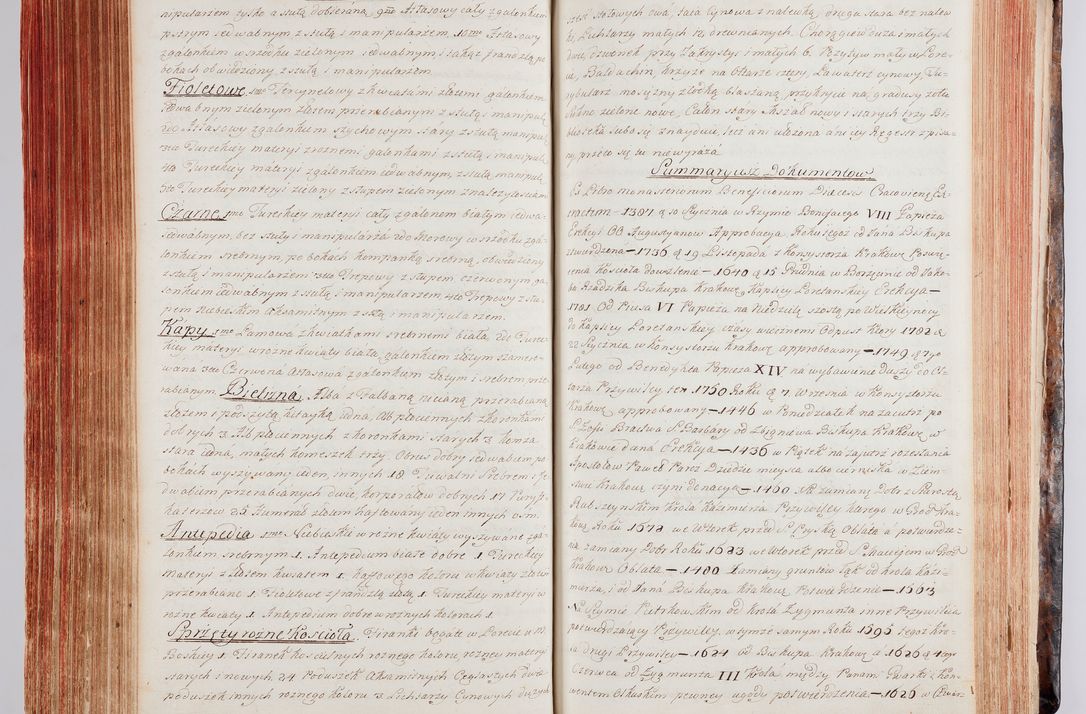 nipularzem tylko a stułą dobieraną 9no Atłasowy cały z galonkiem
pstrym iedwabnym z stułą i manipularzem 10mo Atłasowy
z galonkiem w srzodku zielonym iedwabnym, i takąż frandzlą po
bokach obwiedziony, z stułą i manipularzem
Fioletowe 1mo Tercynelowy z kwiatami złotemi galonkiem
iedwabnym zielonym złotem przerabianym z stułą i manipul:
2do Atłasowy z galonkiem szychowym stary z stułą manipul
3tio Tureckiey materyi z roznemi galonkami z stułą i manipul:
4to Tureckiey materyi z galonkiem iedwabnym, z stułą manipul
5to Tureckiey materyi zielony z stupem zielonym
Czarne 1mo Tureckiey materyi cały z galonem białym iedwa-
iedwabnym, bez stuły i manipularza 2do Morowy w srzodku z ga-
lonkiem srebrnym po bokach kompanką srebrną obwiedziony
z stułą i manipularzem 3tio Trepowy z stupem czerwonym ga-
lonkiem iedwabnym z stułą i manipularzem 4to Trepowy z stu-
pem niebieskim Axamitnym z stułą i manipularzem.
Kapy 1mo Lamowa z kwiatkami srebrnemi biała 2do Turec-
kiey materyi w rożne kwiaty biała galonkiem złotym szamero-
wana 3tio Czerwona Atłasowa z galonkiem złotym i srebrem prze-
rabianym. Bielizna. Alba z Falbaną nicianą przerabianą
złotem i podszytą kitayką iedna, Alb płociennych z koronkami
dobrych 3 Alb płociennych z koronkami starych 3 komża
stara iedna, małych komeszek trzy. Obrus dobry iedwabiem po
bokach wyszywany ieden, innych 18 Tuwalni Srebrem i ie-
dwabiem przerabianych dwie, korporałow dobrych 17 Puryfi-
katerzow 25 Humerał złotem haftowany ieden innych o. m.
Antipedia 1mo Niebieskie w rożne kwiaty wyszywane z ga-
lonkiem srebrnym 1. Antepedium białe dobre 1 Tureckiey
materyi z złotem kwiatem 1. kaffowego koloru w kwiaty złotem
przerabiane 1 Fioletowe z frandzlą złotą 1 Tureckiey materyi w
rożne kwiaty 1 Antepedium dobre w rożnych kolorach 1.
Sprzęty rożne Kościoła. Firanki bogate w Lorecie u M:
Boskiey 1 Firanek koscielnych rożnego koloru, rożney materyi
starych i nowych 24 Poduszek Axamitnych Cęglastych dwie
poduszek innych rożnego koloru 3 Lichtarzy Cynowych dużych
sześć stołowych dwa, taca Cynowa z nalewką, druga taca bez nalew-
ki, Lichtarzy małych 12 drewnianych. Chorągiew duża i małych
dwie, dzwonek przy Zakrystyi i małych 6. Pozytyw mały w Lore-
cie, Baldachim, krzyże na Ołtarze cztery, Lawaterz cynowy, Tu-
rybularz mosiężny z łódką blaszaną, przykrycie na gradusy zoł-
te zielone nowe, Całun stary Mszał nowy i starych trzy Bi-
blioteka lubo się znayduie, lecz ani ułożona ani iey Regestr spisa-
ny, przeto się tu niewyraża
Summaryusz Dokumentow
Ex Libro monasteriorum Beneficiorum Diecesis Cracoviensis Ex-
tractum — 1387 a 10 Stycznia w Rzymie Bonifacego VIII Papieża
Erekcyi OO. Augustyanow Approbacya Roku tegoż od Jana Biskupa
ztwierdzona — 1736 a 19 Listopada z Konsystorza Krakow: Poswię-
cenia kościoła dowodzenie — 1640 a 15 Grudnia w Borzęcinie od Jako-
ba Zadzika Biskupa Krakow: Kaplicy Loretanskiey Erekcya —
1781 Od Piusa VI Papieża na Niedzielę szostą po Wielkieynocy
do kaplicy Loretanskiey czasy wiecznemi Odpust który 1782 a
22 Stycznia w Konsystorzu Krakow: approbowany — 1749 a 8go
Lutego od Benedykta Papieża XIV na wybawienie duszy do Oł-
tarza Przywiley, ten 1750 Roku a 7 Września w Konsystorzu
Krakow: approbowany — 1446 w Poniedziałek nazaiutrz po
S. Zofii Bractwa S. Barbary od Zbigniewa Biskupa Krakow: w
Krakowie dana Erekcya — 1436 w Piątek nazaiutrz rozesłania
Apostołow Paweł Parcz Dziedzic mieysca albo cerniska w Ziem-
stwie Krakow: czyni donacyą — 1460 Na zamiany Dobr z Starostą
Rabsztynskim Krola Kazimierza Przywiley ktorego w Grod: Kra-
kow: Roku 1672 we Wtorek przed S. Łucyą Oblata a potwierdze-
nia zamiany Dobr Roku 1623 we Wtorek przed S. Macieiem w Grod:
Krakow: Oblata — 1480 Zamiany gruntow łąk od Krola Kazi-
mierza, i od Jana Biskupa Krakow: Potwierdzenie — 1563
Na Seymie Piotrkowskim od Krola Zygmunta inne Przywileia
potwierdzaiący Przywiley, w tymże samym Roku 1595 tegoż Kro-
la drugi Przywiley — 1624 od Biskupa Krakow: a 1626 a 4go
Czerwca od Zygmunta III Krola między Panem Gwarki z Kon-
wentem Olkuskim pewney ugody potwierdzenia — 1625 w Czwar-